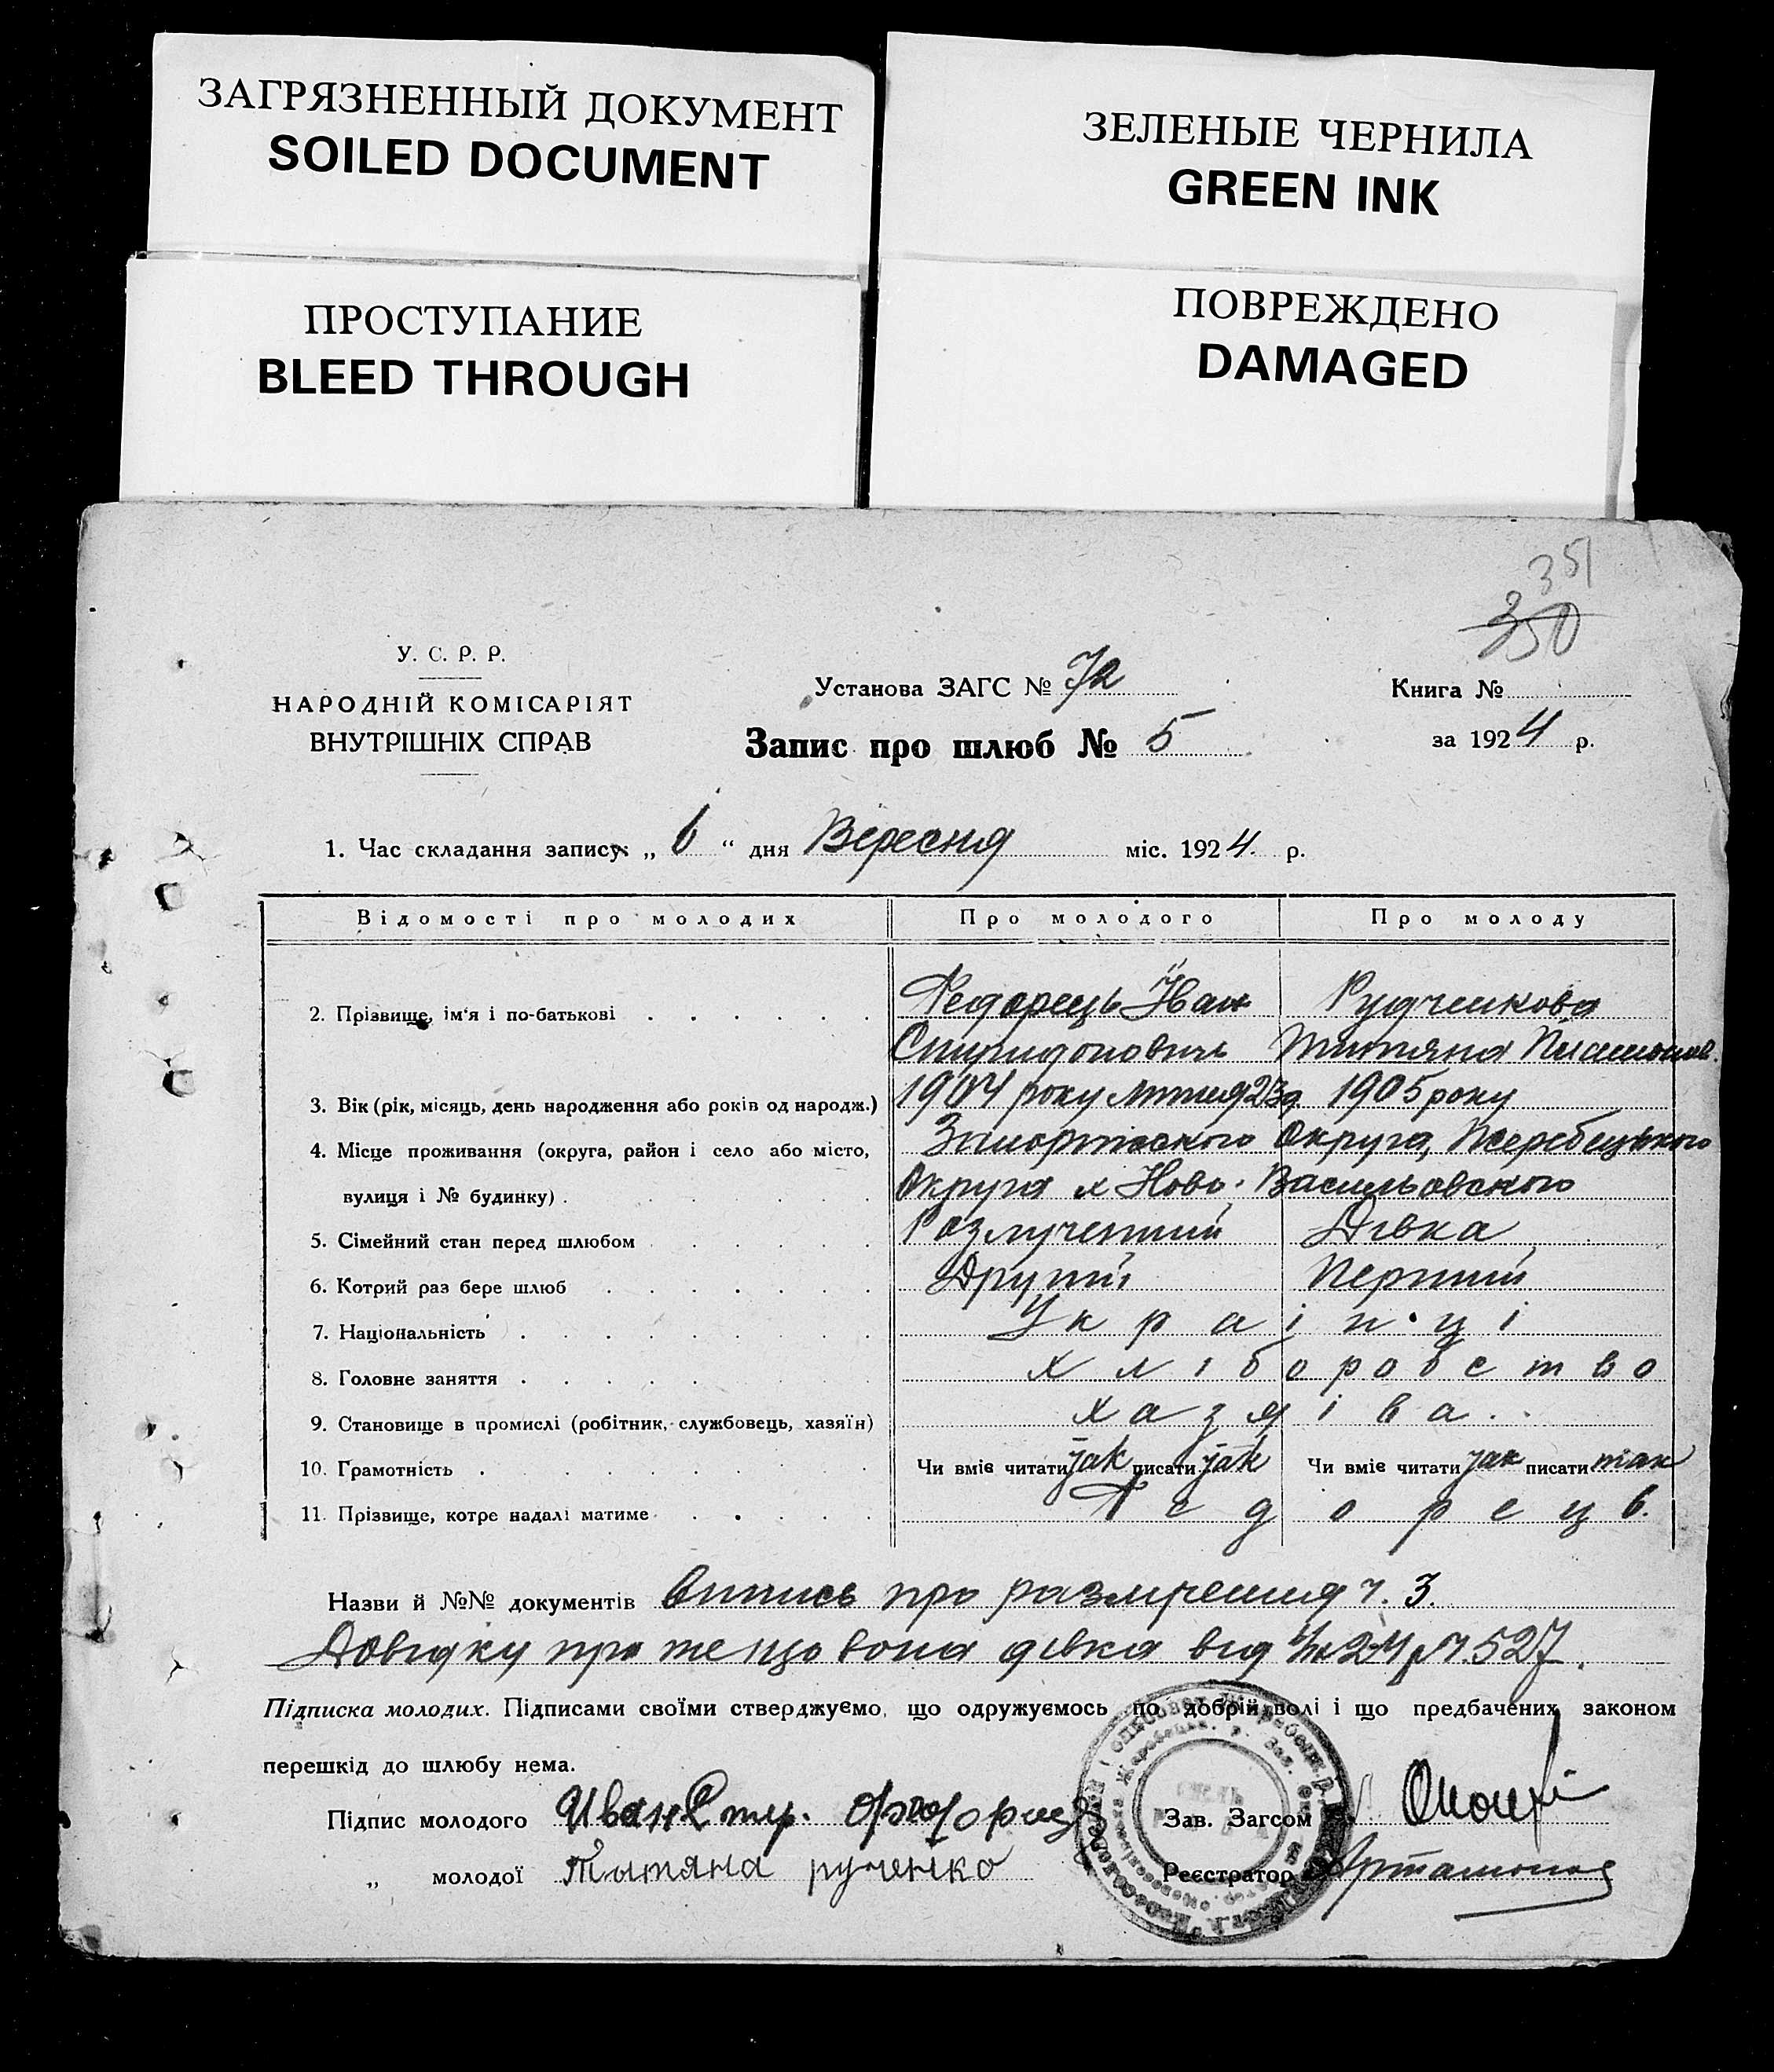 ЗАГРЯЗНЕННЫЙ ДОКУМЕНТ
SOILED DOCUMENT
ЗЕЛЕНЫЕ ЧЕРНИЛА
GREEN INK
ПРОСТУПАНИЕ
BLEED THROUGH
ПОВРЕЖДЕНО
DAMAGED
351
350
У. С. Р. Р.
НАРОДНІЙ КОМІСАРІЯТ
ВНУТРІШНІХ СПРАВ
Установа ЗАГС № 72
Книга №
Запис про шлюб № 5
за 1924 р.
1. Час складання запису: „ 6 “ дня Вересня міс. 1924 р.
Відомості про молодих Про молодого Про молоду
2. Прізвище, ім‘я і по-батькові Федорець Йван Рудченкова
Спиридонович Титяна
3. Вік (рік, місяць, день народження або років од народж.) 1904 року 23д 1905 року
4. Місце проживання (округа, район і село або місто, Запорізького Округа, Жеребецького
вулиця і № будинку) Округа х Ново-Васильовского
5. Сімейний стан перед шлюбом Розлученний Дівка
6. Котрий раз бере шлюб Другий Перший
7. Національність Українці
8. Головне заняття хліборобство
9. Становище в промислі (робітник, службовець, хазяїн) хазяіва
10. Грамотність Чи вміє читати так писати так Чи вміє читати так писати так
11. Прізвище, котре надалі матиме Федорець
Назви й №№ документів Випись про ч. 3.
Довідку про те що вона дівка від 527.
Підписка молодих. Підписами своїми стверджуємо, що одружуємось по добрій волі і що предбачених законом
перешкід до шлюбу нема.
Підпис молодого Иван Зав. Загсом
„ молодої Тытяна рученко Реєстратор